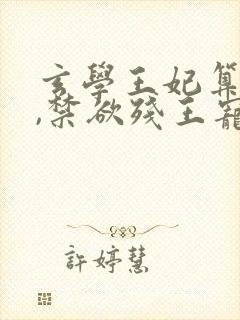 玄學王妃算
,禁欲殘王寵
許婷慧